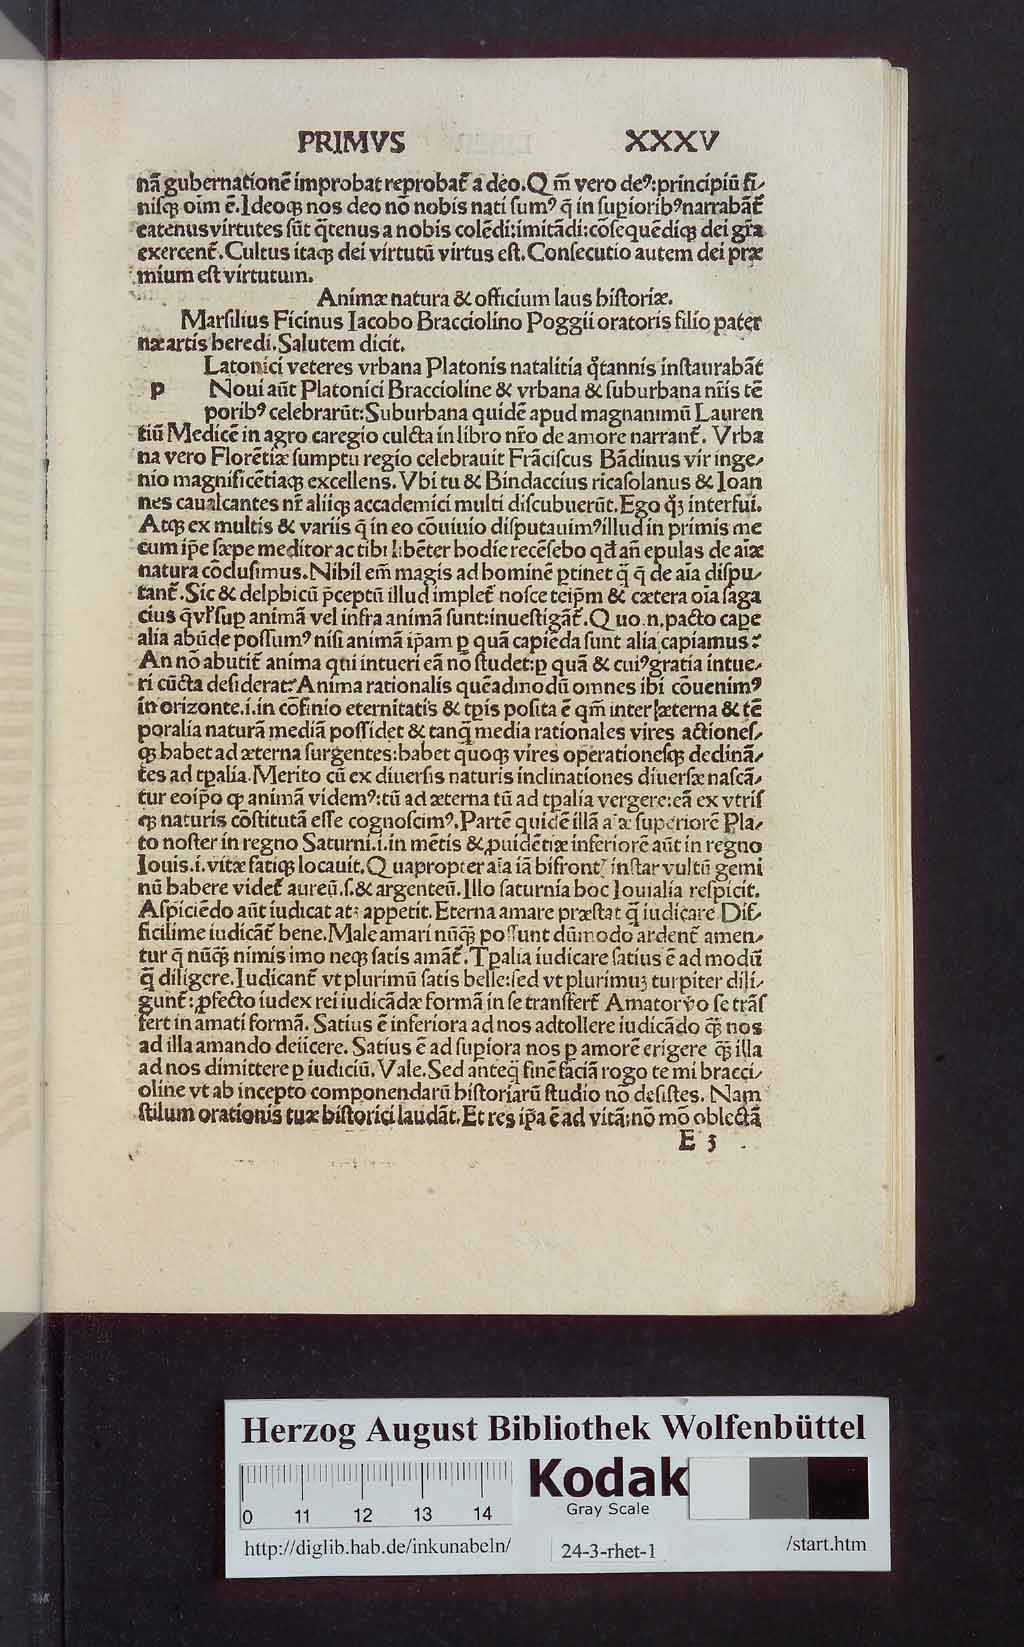 PRIMVS XXXV
nã gubernationẽ improbat reprobat̃ a deo. Qm̃ vero deꝰ: principiũ fi⸗
nisqꝫ oĩm ẽ. Ideoqꝫ nos deo nõ nobis nati sumꝰ q̃ in supioribꝰ narrabãt̃
eatenus virtutes sũt q̃tenus a nobis colẽdi: imitãdi: cõsequẽdiqꝫ dei gr̃a
exercent̃. Cultus itaqꝫ dei virtutũ virtus est. Consecutio autem dei præ
mium est virtutum.
Animæ natura & officium laus historiæ.
Marsilius Ficinus Iacobo Bracciolino Poggii oratoris filio pater
næ artis heredi. Salutem dicit.
Latonici veteres vrbana Platonis natalitia q̊tannis instaurabãt
p Noui aũt Platonici Braccioline & vrbana & suburbana nr̃is tẽ
poribꝰ celebrarũt: Suburbana quidẽ apud magnanimũ Lauren
tiũ Medicẽ in agro caregio culcta in libro nr̃o de amore narrant̃. Vrba
na vero Florẽtiæ sumptu regio celebrauit Frãciscus Bãdinus vir inge⸗
nio magnificẽtiaqꝫ excellens. Vbi tu & Bindaccius ricasolanus & Ioan
nes caualcantes nr̃ aliiqꝫ accademici multi discubuerũt. Ego q̊ꝫ interfui.
Atqꝫ ex multis & variis q̃ in eo cõuiuio disputauimꝰ illud in primis me
cum ip̃e sæpe meditor ac tibi libẽter hodie recẽsebo qđ añ epulas de aĩæ
natura cõclusimus. Nihil em̃ magis ad hominẽ ꝑtinet q̃ q̃ de aĩa dispu⸗
tant̃. Sic & delphicũ p̃ceptũ illud implet̃ nosce teip̃m & cætera oĩa saga
cius q̃ vl̃ sup animã vel infra animã sunt: inuestigãt̃. Quo .n. pacto cape
alia abũde possumꝰ nisi animã ip̃am ꝑ quã capiẽda sunt alia capiamus?
An nõ abutit̃ anima qui intueri eã nõ studet: ꝑ quã & cuiꝰ gratia intue⸗
ri cũcta desiderat? Anima rationalis quẽadmodũ omnes ibi cõuenimꝰ
in orizonte .i. in cõfinio eternitatis & tp̃is posita ẽ qm̃ inter æterna & tẽ
poralia naturã mediã possidet & tanq̃ media rationales vires actiones⸗
qꝫ habet ad æterna surgentes: habet quoqꝫ vires operationesqꝫ declinã⸗
tes ad tp̃alia. Merito cũ ex diuersis naturis inclinationes diuersæ nascã⸗
tur eoip̃o qꝙ animã videmꝰ: tũ ad æterna tũ ad tp̃alia vergere: eã ex vtris
qꝫ naturis cõstitutã esse cognoscimꝰ. Partẽ quidẽ illã aĩæ superiorẽ Pla⸗
to noster in regno Saturni .i. in mẽtis & ꝓuidẽtiæ inferiorẽ aũt in regno
Iouis .i. vitæ fatiqꝫ locauit. Quapropter aĩa iã bifrontꝭ instar vultũ gemi
nũ habere videt̃ aureũ .s. & argenteũ. Illo saturnia hoc Iouialia respicit.
Aspiciẽdo aũt iudicat atqꝫ appetit. Eterna amare præstat q̃ iudicare. Dif⸗
ficilime iudicãt̃ bene. Male amari nũq̃ꝫ possunt dũmodo ardent̃ amen⸗
tur q̃ nũq̃ꝫ nimis imo neqꝫ satis amãt̃. Tp̃alia iudicare satius ẽ ad modũ
q̃ diligere. Iudicant̃ vt plurimũ satis belle: sed vt plurimuꝫ turpiter dili⸗
gunt̃: ꝓfecto iudex rei iudicãdæ formã in se transfert̃ Amator ṽo se trãs
fert in amati formã. Satius ẽ inferiora ad nos adtollere iudicãdo q̃ꝫ nos
ad illa amando deiicere. Satius ẽ ad supiora nos ꝑ amorẽ erigere q̃ꝫ illa
ad nos dimittere ꝑ iudiciũ. Vale. Sed anteq̃ finẽ faciã rogo te mi bracci⸗
oline vt ab incepto componendarũ historiarũ studio nõ desistes. Nam
stilum orationis tuæ historici laudãt. Et res ip̃a ẽ ad vitã: nõ mõ oblectã
E 3
Herzog August Bibliothek Wolfenbüttel
0 11 12 13 14
Kodak
Gray Scale
http://diglib.hab.de/inkunabeln/ 24-3-rhet-1 /start.htm